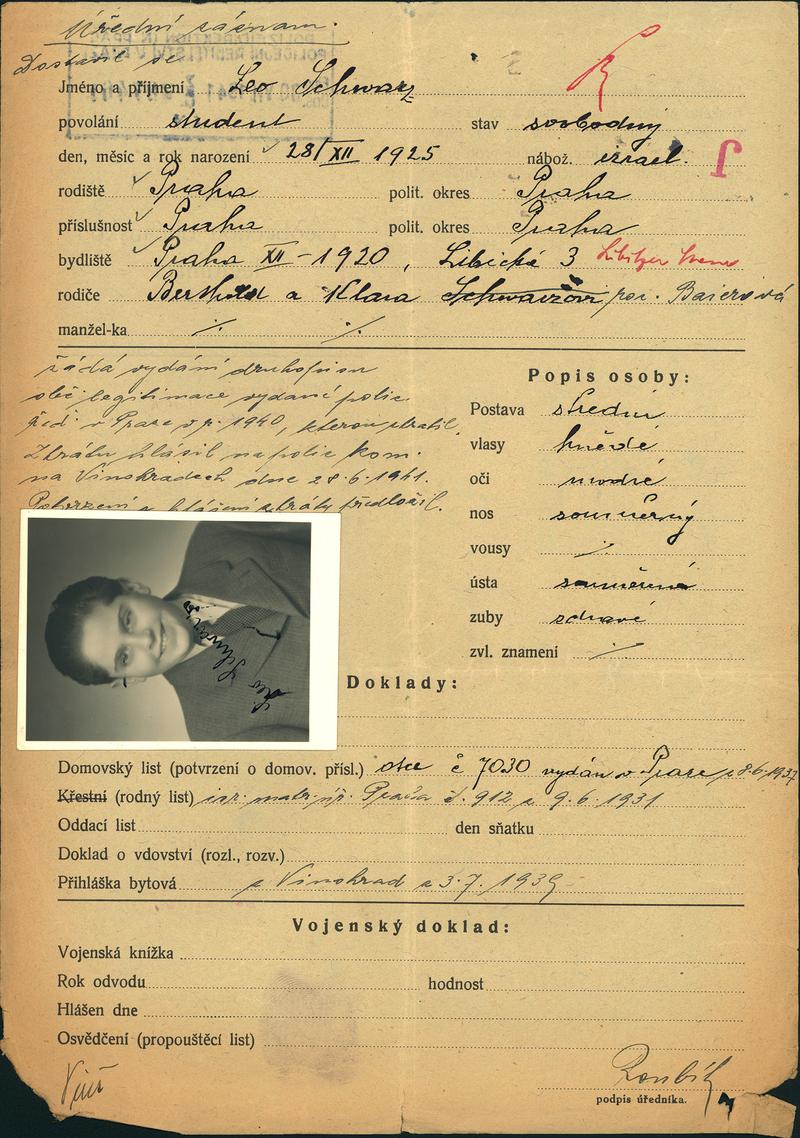 Úřední záznam.
Dostavil se
Jméno a příjmení Leo Schwarz
povolání student stav svobodný
den, měsíc a rok narození 28/XII 1925 nábož. izrael.
rodiště Praha polit. okres Praha
příslušnost Praha polit. okres Praha
bydliště Praha XII - 1920, Libická 3 Libitzer
rodiče Berthold a Klara Schwarzovi roz. Baierová
manžel-ka ./. ./.
žádá vydání druhopisu
obč. legitimace vydané polic.
řed. v Praze v r. 1940, kterou ztratil.
Ztrátu hlásil na polic. kom.
na Vinohradech dne 28.6.1941.
Potvrzení o hlášení ztráty předložil.
Popis osoby:
Postava střední
vlasy hnědé
oči modré
nos souměrný
vousy ./.
ústa souměrná
zuby zdravé
zvl. znamení ./.
Leo Schwarz
Doklady:
Domovský list (potvrzení o domov. přísl.) otce č 7030 vydán v Praze 8.6.1937
Křestní (rodný list) izr. matr. úř. Praha č. 912 z 9.6.1931
Oddací list den sňatku
Doklad o vdovství (rozl., rozv.)
Přihláška bytová z Vinohrad z 3.7.1939
Vojenský doklad:
Vojenská knížka
Rok odvodu hodnost
Hlášen dne
Osvědčení (propouštěcí list)
podpis úředníka.